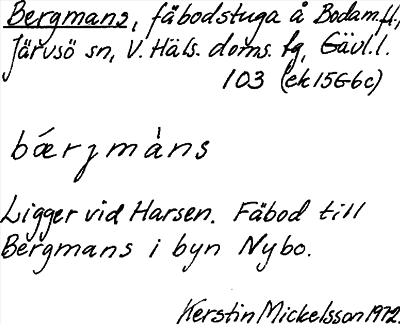 Bergmans, fäbodstuga å Bodam.fl.,
Järvsö sn, V. Häls. doms. fg, Gävl. l.
103 (ek15G6c)
bǽrjmàns
Ligger vid Harsen. Fäbod till
Bergmans i byn Nybo.
Kerstin Mickelsson 1972.